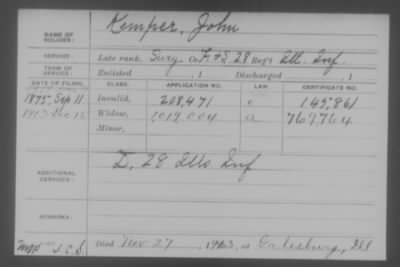 Kemper, John
NAME OF SOLDIER:
SERVICE: Late rank, Surg, Co. F. & S. 28 Reg't Ill. Inf.
TERM OF SERVICE: Enlisted , 1 Discharged , 1
DATE OF FILING. CLASS. APPLICATION NO. LAW. CERTIFICATE NO.
1875, Sep 11 Invalid, 208,471 145,861
1913 Dec 12 Widow, 1019.004 a 769,764
Minor,
ADDITIONAL SERVICES: D, 28 Ills. Inf
REMARKS:
Died Nov 27, 1913, at Galesburg, Ill